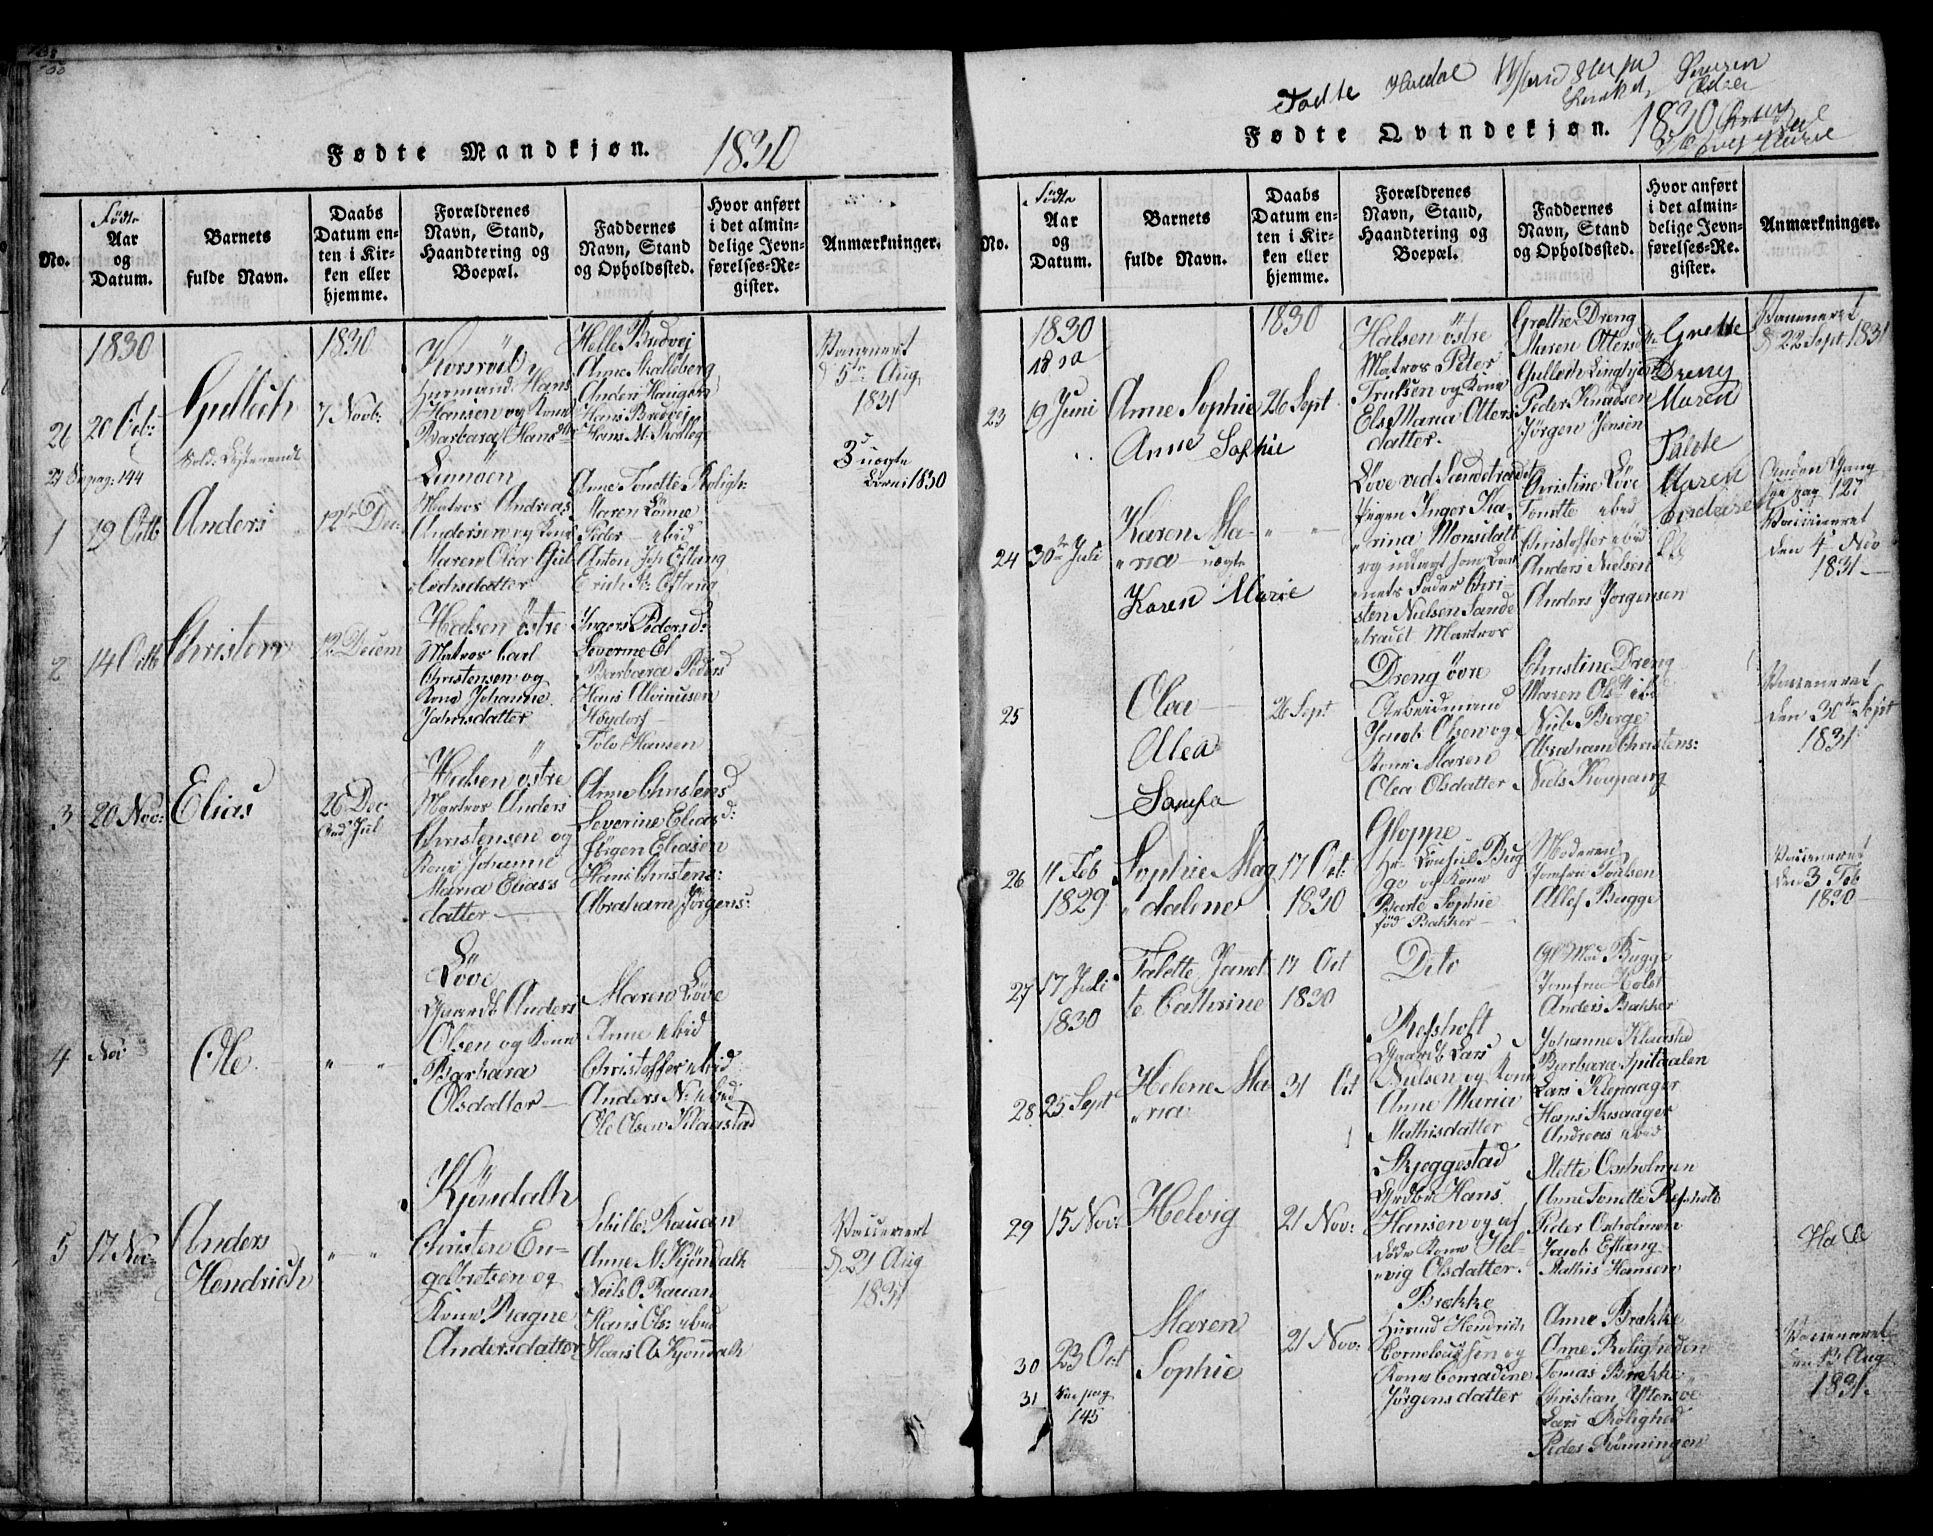 Fødte Mandkjøn. 1830
No.
Fødte Aar og Datum.
Barnets fulde Navn.
Daabs Datum enten i Kirken eller hjemme.
Forældrenes Navn, Stand, Haandtering og Boepæl.
Faddernes Navn, Stand og Opholdssted.
Hvor anført i det almindelige Jevnførelses-Register.
Anmærkninger.
1830
1830
26
20 Oct:
Gullich
7 Novb:
Hans
Hansen og Kone
Barbara Hans
Helle Bredvej
Anne Skalleberg
Anders Haugen
Hans Bredvej
Hans M. Skalleb
Vaccineret
5te Aug
1831
3 uægte
Børn i 1830
1
19 Octb
Anders
12te Dec:
Matros Andreas
Andersen og Kone
Maren Olea Gul
lichsdatter
Anne Tonette Roligh:
Maren Lönne
Peder ibid
Anton Joh Eftang
Erich N: Eftang
2
14 Octb
Christen
12 Decem
Halsen östre
Matros Carl
Christensen og
Kone Johanne
Jahnsdatter
Ingers Pedersd:
Severine El
Barbara Peders
Hans Alvinusen
Höydorf
Tolv Hansen
3
20 Nov:
Elias
26 Dec
And Jul
Halsen östre
Matros Anders
Christensen og
Kone Johanne
Maria Elias
datter
Anne Christens
Severine Elias d:
Jörgen Eliasen
Hans Christens:
Abraham Jörgens:
4
Nov
Ole
" "
Löve
Gaardb Anders
Olsen og Kone
Barbara
Olsdatter
Maren Löve
Anne ibid
Christoffer ibid
Anders N: ibid
Ole Olsen Klaastad
5
17 Nov:
Anders
Hendrich
" "
Kjöndahl
Christen En-
gelbretsen og
Kone Ragne
Andersdatter
Sibille Rauan
Anne M. Kjöndahl
Neils O. Rauan
Hans Ols: ibid
Hans A Kjöndahl
Vaccineret
d 21 Aug
1831
Fødte Qvindekjøn. 1830
No.
Fødte Aar og Datum.
Barnets fulde Navn.
Daabs Datum enten i Kirken eller hjemme.
Forældrenes Navn, Stand, Haandtering og Boepæl.
Faddernes Navn, Stand og Opholdssted.
Hvor anført i det almindelige Jevnførelses-Register.
Anmærkninger.
1830
1830
23
19 Juni
Anne Sophie
Anne Sophie
26 Sept
Halsen östre
Matros Peter
Trulsen og Kone
Else Maria Otters
datter.
Grethe Dreng
Maren Ottersd
Gullich Linghjem
Peder Knudsen
Jörgen Jensen
Grette
Dreng
Maren
Vaccineret
d 22 Sept 1831
24
30te Juli
Karen Ma-
"ria uægte
Karen Marie
" "
Löve ved Sandetraaet
Pigen Inger Ka
"rina Monsdatt
og udlagt som Bar
nets Fader Chri
sten Nielsen Sande
traaet Matros
Christine Löve
Tonette ibid
Christoffer ibid
Anders Nielsen
Anders Jorgensen
Maren
Anden Gang
see pag 127
Vaccineret
den 4 Nov
1831
25
Olea
Alea
26 Sept
Dreng övre
Arbeidsmand
Jacob Olsen og
Kone Maren
Olea Olsdatter
Christine Dreng
Maren Ols ibid
Niels Berge
Abraham Christens:
Niels Kaupang
Vaccineret
den 30 Sept
1831
26
11 Feb
1829
Sophie Mag
"dalene
17 Oct:
1830
Gloppe
Hr. Consul Bug
ge og Kone
Barte Sophie
föd Bakker
Moderen
Jomfru Poulsen
Allef Bugge
Vaccineret
den 3 Feb
1830
27
17 Juli
1830
Talette Janet
te Cathrine
17 Oct
1830
Dito
Gl Mad Bugge
Jomfru Holst
Anders Bakker
28
25 Sept
Helene Ma
"ria
31 Oct
Refsholt
Gaardb Lars
Nielsen og Kone
Anne Maria
Mathisdatter
Johanne Klaastad
Barbara Spitaalen
Lars Klepaager
Hans Skisaager
Andreas ibid
29
15 Nov:
Helvig
21 Nov:
Skjeggestad
Grdbr Hans
Hansen og af
döde Kone Hel-
"vig Olsdatter.
Mette Oseholmen
Anne Tonette Refsholt
Peder Oseholmen
Jacob Eftang
Mathis Hansen
30
23 Oct
Maren
Sophie
21 Nov:
Brække
Huusmd Hendrich
Corneliussen og
Kone Conradine
Jörgensdatter
Anne Brække
Anne Roligheden
Tomas Brække
Christian Ytersøe
Lars Rolighed
Peder Rönningen
Vaccineret
den 13 Aug
1831.
31
See pag
145